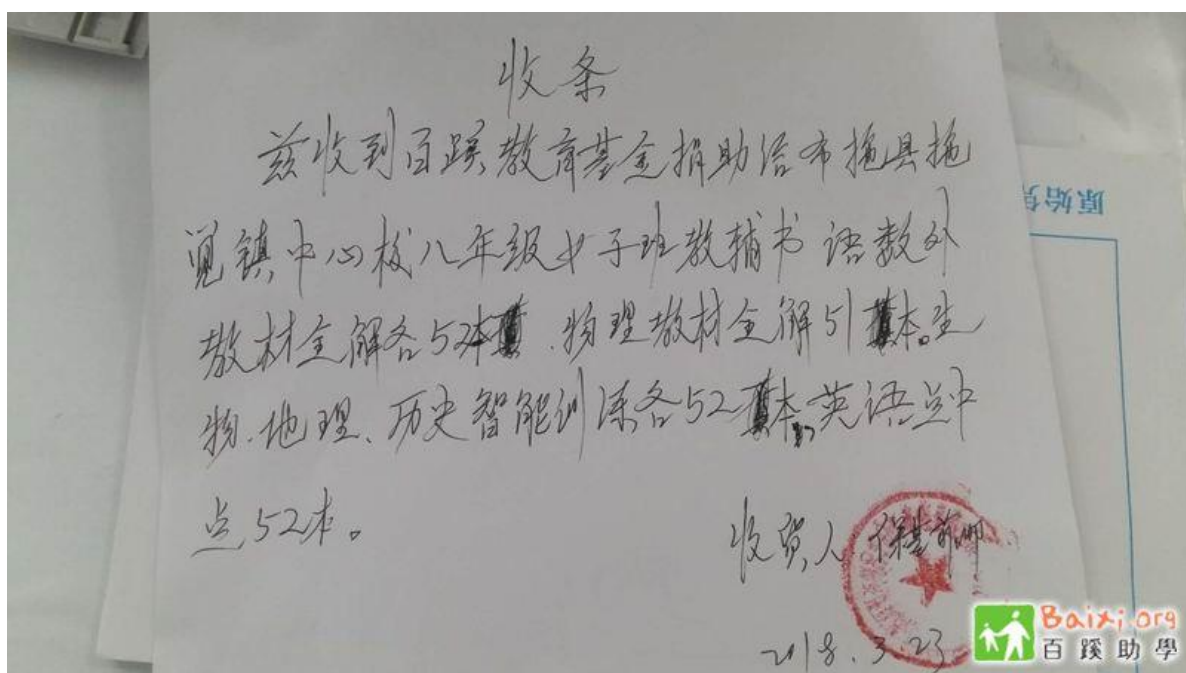 收条
兹收到百蹊教育基金捐助给布拖县拖
觉镇中心校八年级女子班教辅书 语数外
教材全解各52本、物理教材全解51本。生
物、地理、历史智能训练各52本,英语点中
点52本。
收货人
2018.3.23
原始
Baixi.org
百蹊助學